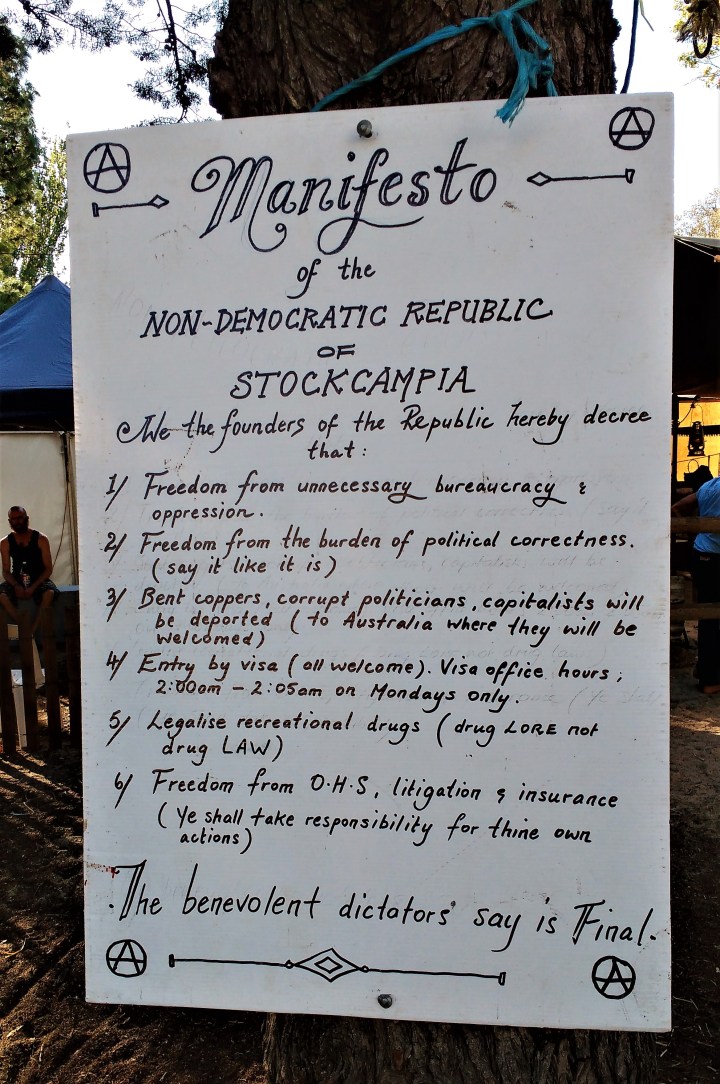 Manifesto
of the
NON-DEMOCRATIC REPUBLIC
OF
STOCKCAMPIA
We the founders of the Republic hereby decree
that:
1/ Freedom from unnecessary bureaucracy &
oppression.
2/ Freedom from the burden of political correctness.
(say it like it is)
3/ Bent coppers, corrupt politicians, capitalists will
be deported (to Australia where they will be
welcomed)
4/ Entry by visa (all welcome). Visa office hours;
2:00am - 2:05am on Mondays only.
5/ Legalise recreational drugs (drug LORE not
drug LAW)
6/ Freedom from O.H.S, litigation & insurance
(Ye shall take responsibility for thine own
actions)
The benevolent dictators' say is Final.